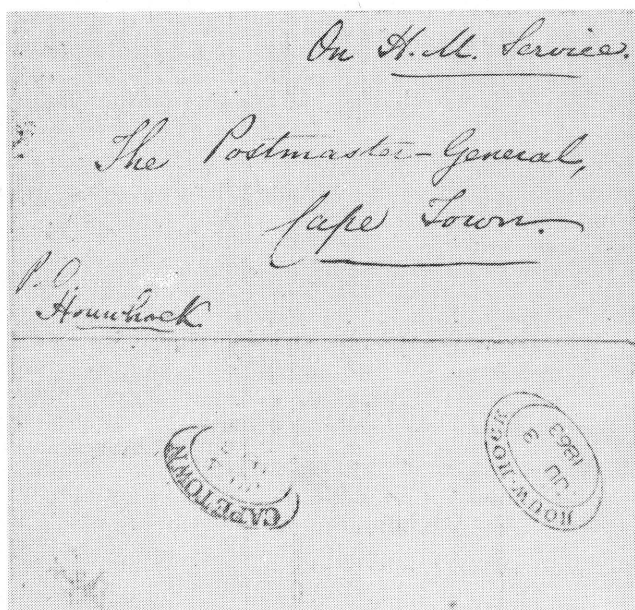 On H.M. Service.
The Postmaster-General,
Cape Town.
P.O.
Houwhoek
CAPETOWN
HOUW-HOEK
3
1863